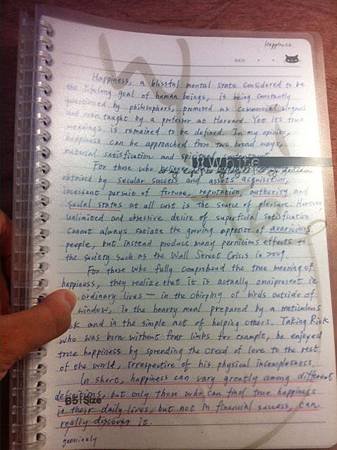 Happiness
DATE
Happiness, a blissful mental state considered to be
the lifelong goal of human beings, is being constantly
questioned by philosophers, promoted as commercial slogans
and even taught by a professor at Harvard. Yet its true
meanings is remained to be defined. In my opinion,
happiness can be approached from two broad ways,
material satisfaction and
For those who
obtained by secular success and assets acquisition,
incessant pursue of fortune, reputation, authority and
social status at all cost is the source of pleasure. However
unlimited and obsessive desire of superficial satisfaction
cannot always satiate the growing appetite of avaricious
people, but instead produce many pernicious effects to
the society such as the Wall Street Crisis in 2009.
For those who fully comprehend the true meaning of
happiness, they realize that it is actually omnipresent in
ordinary lives — in the chirping of birds outside of
window, in the hearty meal prepared by a meticulous
and in the simple act of helping others. Taking Rick
who was born without four limbs for example, he enjoyed
true happiness by spending the creed of love to the rest
of the world, irrespective of his physical incompleteness.
In short, happiness can vary greatly among different
definitions, but only those who can find true happiness
in their daily lives, but not in financial success, can
really discover it.
genuinely
B5 Size